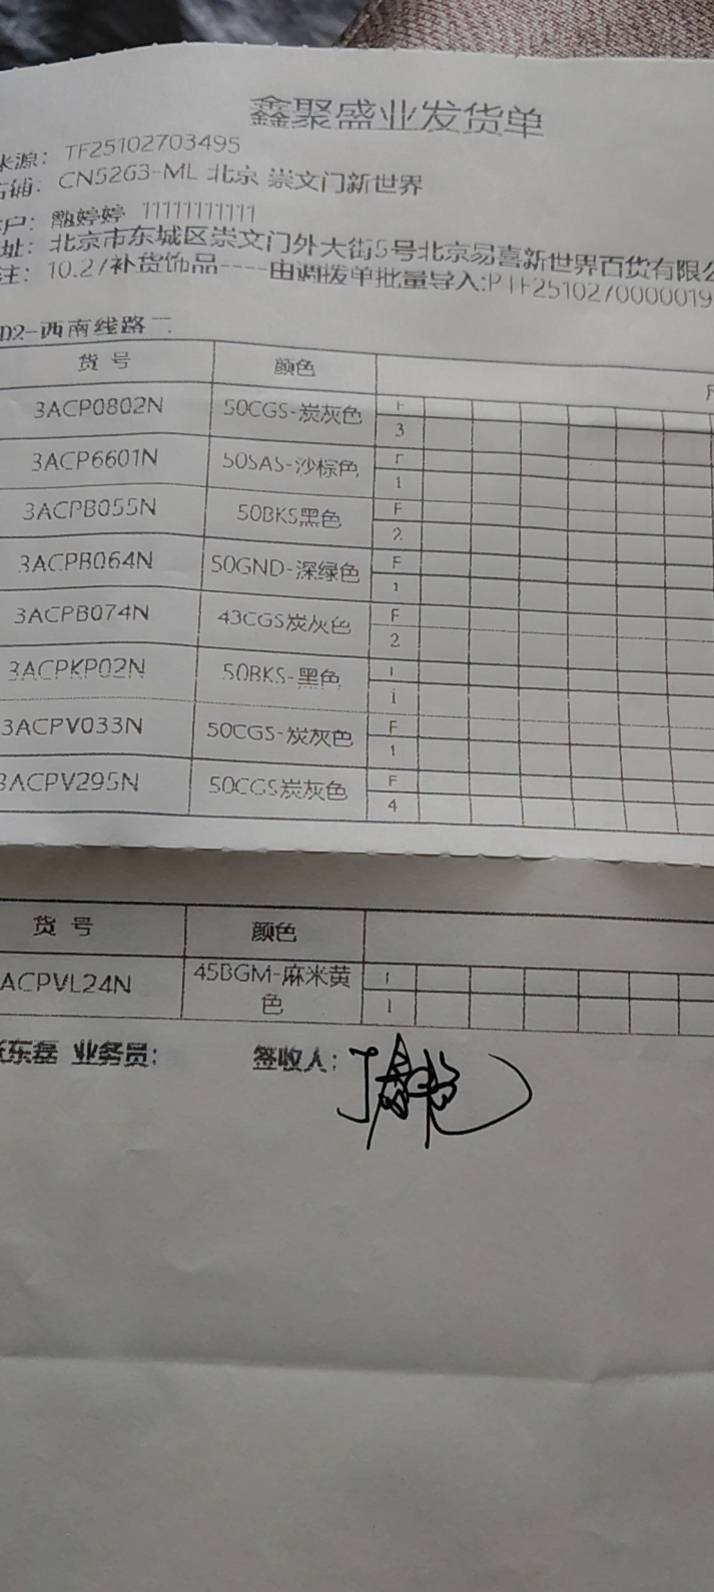 鑫聚盛业发货单
来源: TF25102703495
店铺: CN5263-ML 北京 崇文门新世界
客户: 甄婷婷 11111111111
地址: 北京市东城区崇文门外大街5号北京易喜新世界百货有限公
备注: 10.27补货饰品----由调拨单批量导入:PTF2510270000019
D2-西南线路二
货号 颜色
3ACP0802N 50CGS-炭灰色 F
3
3ACP6601N 50SAS-沙棕色 F
1
3ACPB055N 50BKS黑色 F
2
3ACPB064N 50GND-深绿色 F
1
3ACPB074N 43CGS炭灰色 F
2
3ACPKP02N 50BKS-黑色
1
3ACPV033N 50CGS-炭灰色 F
1
3ACPV295N 50CGS炭灰色 F
4
货号 颜色
ACPVL24N 45BGM-麻米黄
色
1
东磊 业务员: 签收人: